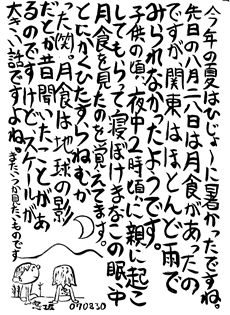 今年の夏はひじょ〜に暑かったですね。
先日の八月二八は月食があったの
ですが、関東はほとんど雨で
みられなかったようです。
子供の頃、夜中2時頃に親に起こ
してもらって寝ぼけまなこの眠い中
月食を見たのを覚えてます。
とにかくひたすらねむか
った(笑)。月食は地球の影
だとか昔聞いたことがあ
るのですけど、スケールが
大きい話ですよね。
またいつか見たいものです
070830